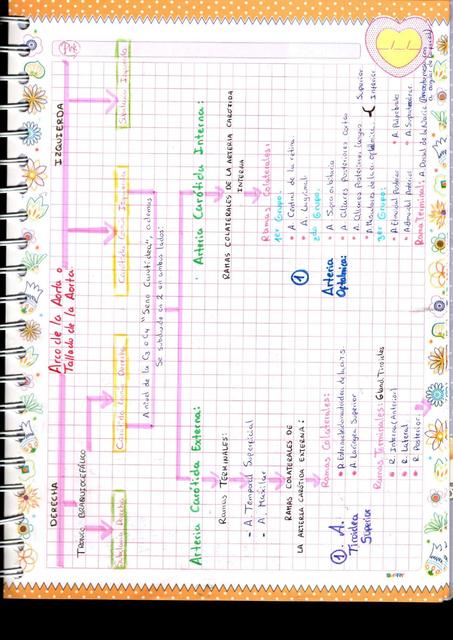 Arco de la Aorta o
Tallado de la Aorta:
DERECHA
IZQUIERDA
TRONCO BRAQUIOCEFÁLICO
Subclavia Derecha
Carótida Común Derecha
Carótida Común Izquierda
Subclavia Izquierda
A nivel de la C3 o C4 "Seno Carotídeo", además
Se subdivide en 2 en ambos lados:
Arteria Carótida Externa:
RAMAS TERMINALES:
- A. Temporal Superficial
- A. Maxilar
RAMAS COLATERALES DE
LA ARTERIA CARÓTIDA EXTERNA:
① . A.
Tiroidea
Superior
Ramas Colaterales:
A. Laríngea Superior
Ramas Terminales: Gland. Tiroides
R. Interna (Anterior)
R. Lateral
R. Posterior
Arteria Carótida Interna:
RAMAS COLATERALES DE LA ARTERIA CARÓTIDA
INTERNA
①
Arteria
Oftálmica:
Ramas Colaterales:
1er Grupo:
A. Central de la retina
A. Lagrimal
2do Grupo:
A. Supraorbitaria
A. Ciliares Posteriores Cortas
A. Ciliares Posteriores Largas
A. Musculares de la a. oftálmica
Superior
Inferior
3er Grupo:
A. Etmoidal Posterior
A. Etmoidal Anterior
A. Palpebrales
A. Supratroclear
Rama Terminal: A. Dorsal de la Nariz